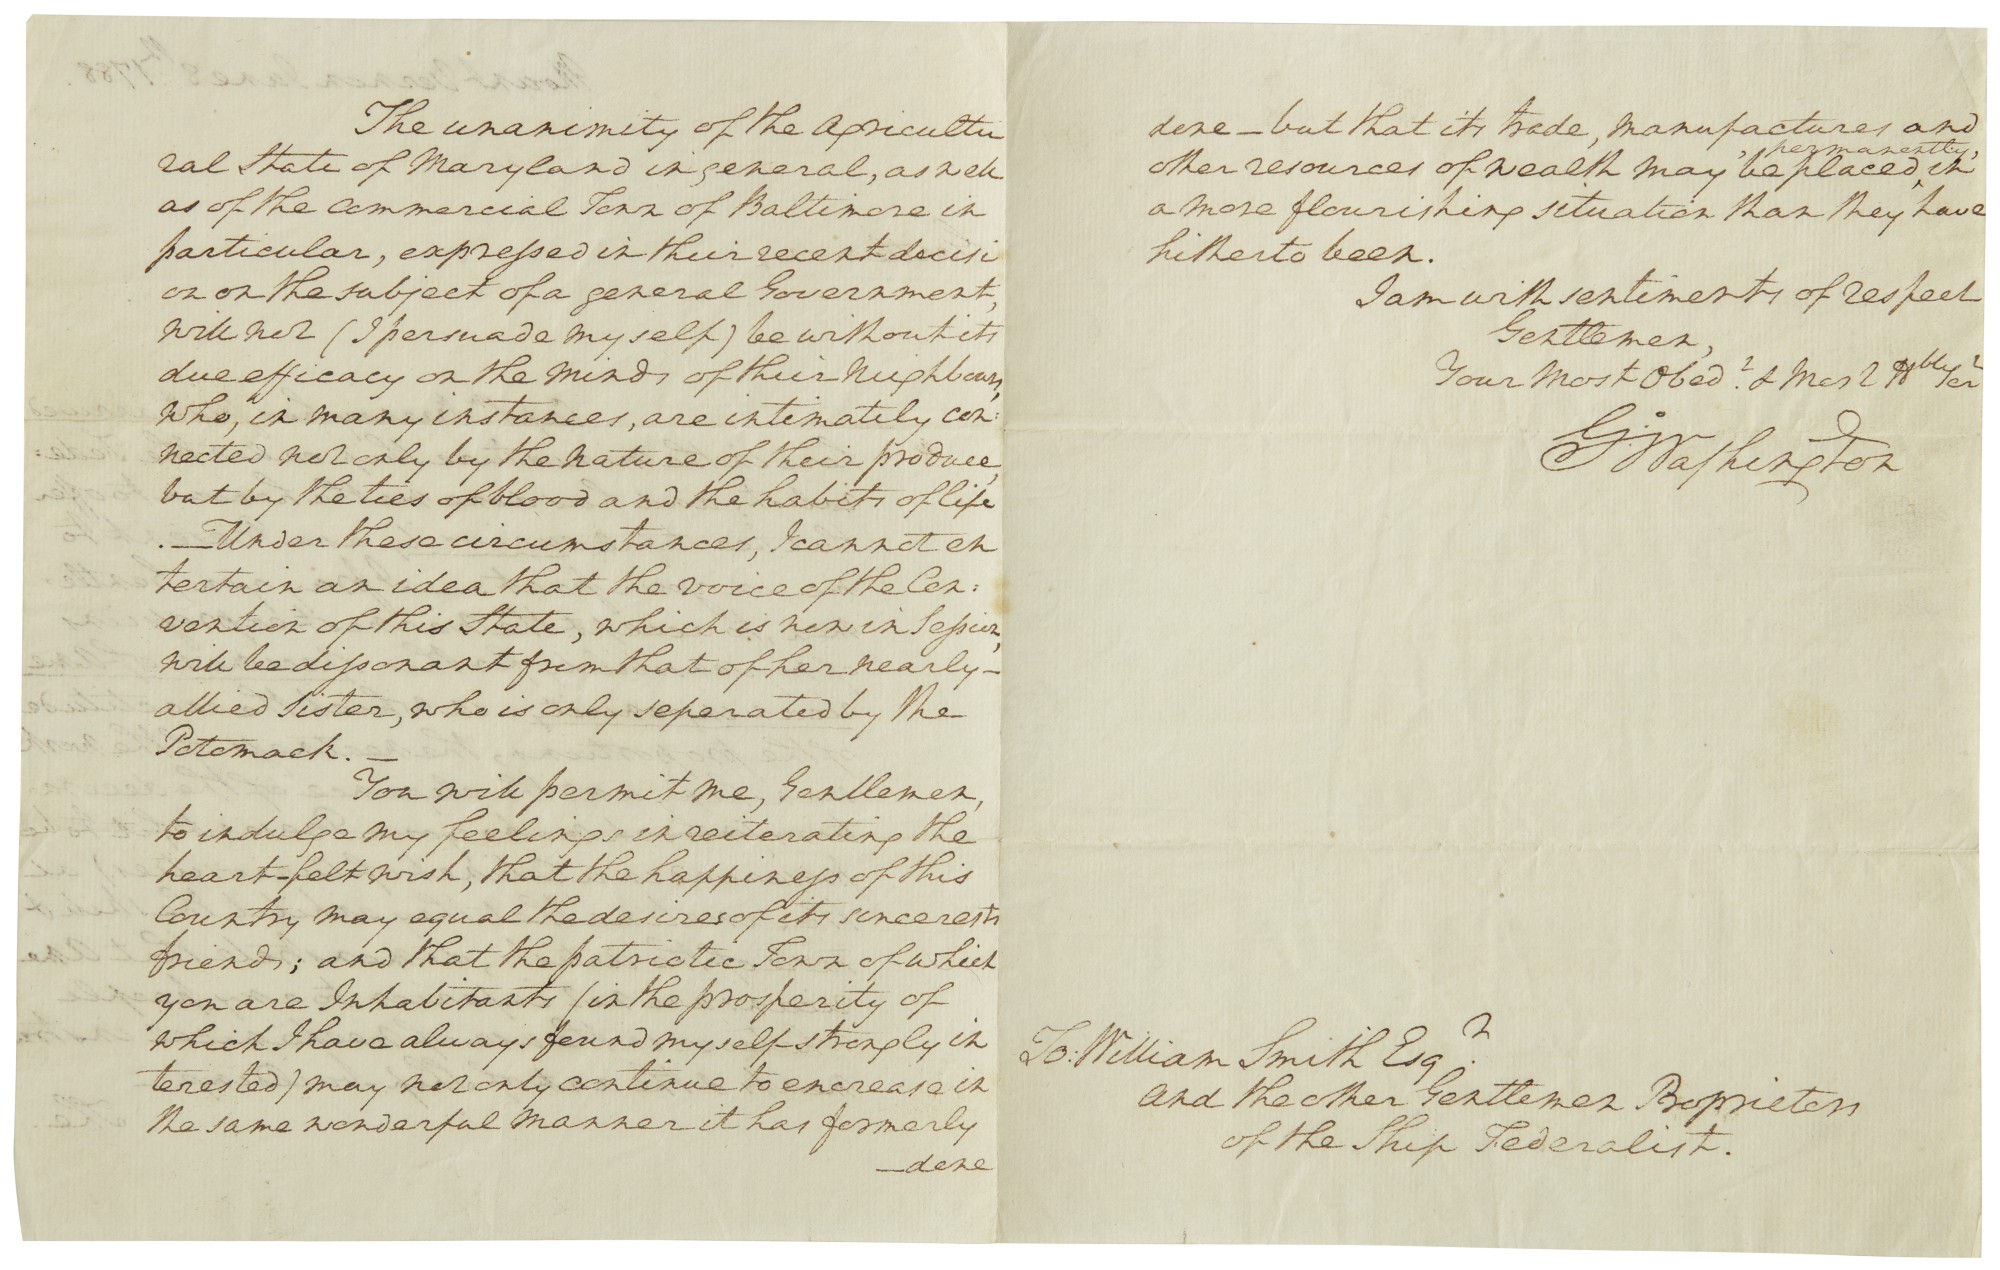 The unanimity of the Agricultu
ral State of Maryland in general, as well
as of the commercial Town of Baltimore in
particular, expressed in their recent decisi
on on the subject of a general Government,
will not (I persuade myself) be without its
due efficacy on the minds of their Neighbours,
who, in many instances, are intimately con:
nected not only by the nature of their produce,
but by the ties of blood and the habits of life
. — Under these circumstances, I cannot en
tertain an idea that the voice of the Con:
vention of this State, which is now in Session,
will be dissonant from that of her nearly-
allied sister, who is only seperated by the
Potomack. —
You will permit me, Gentlemen,
to indulge my feelings in reiterating the
heart-felt wish, that the happiness of this
Country may equal the desires of its sincerests
friends; and that the patriotic Town of which
you are Inhabitants (in the prosperity of
which I have always found myself strongly in
terested) may not only continue to encrease in
the same wonderful manner it has formerly
— done
done — but that its trade, manufactures and
other resources of wealth may be placed, permanently, in
a more flourishing situation than they have
hitherto been.
I am with sentiments of respect
Gentlemen,
Your Most Obedt. & Most Hble Ser
G: Washington
To: William Smith Esqr.
and the other Gentlemen Proprietors
of the Ship Federalist.
Mount Vernon June 8th 1788.